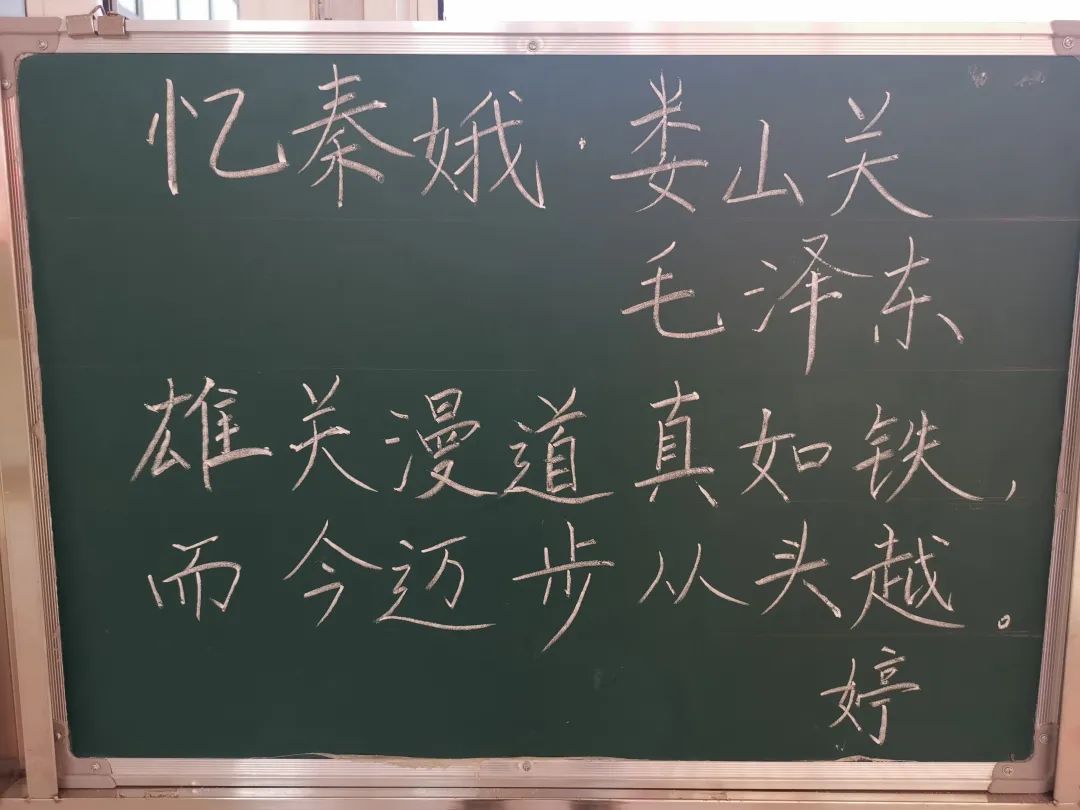 忆秦娥·娄山关
毛泽东
雄关漫道真如铁，
而今迈步从头越。
婷